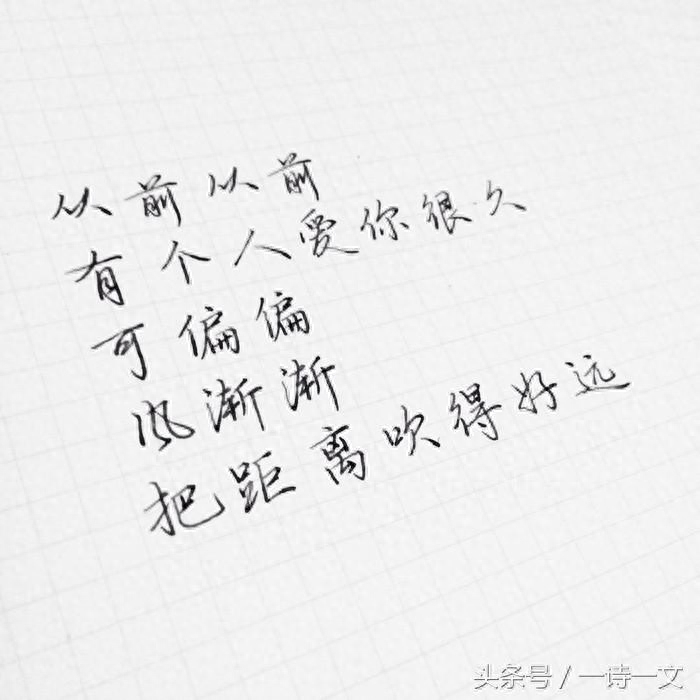 从前从前
有个人爱你很久
可偏偏
风渐渐
把距离吹得好远
头条号/一诗一文